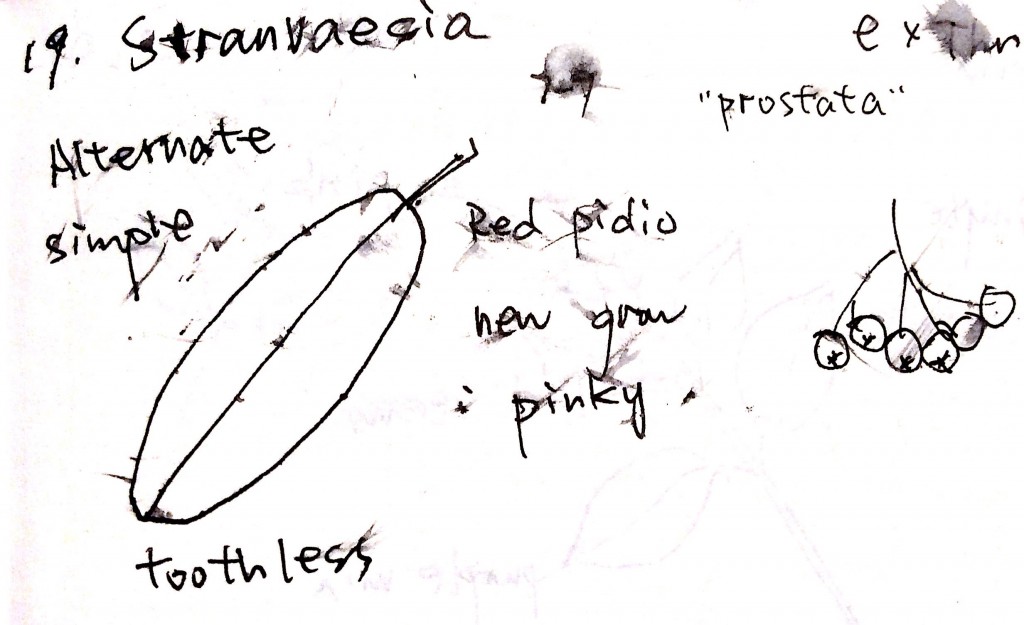 19. Stranvaecia
ex
"prostata"
Alternate
simple
Red pidio
new grow
pinky
toothless